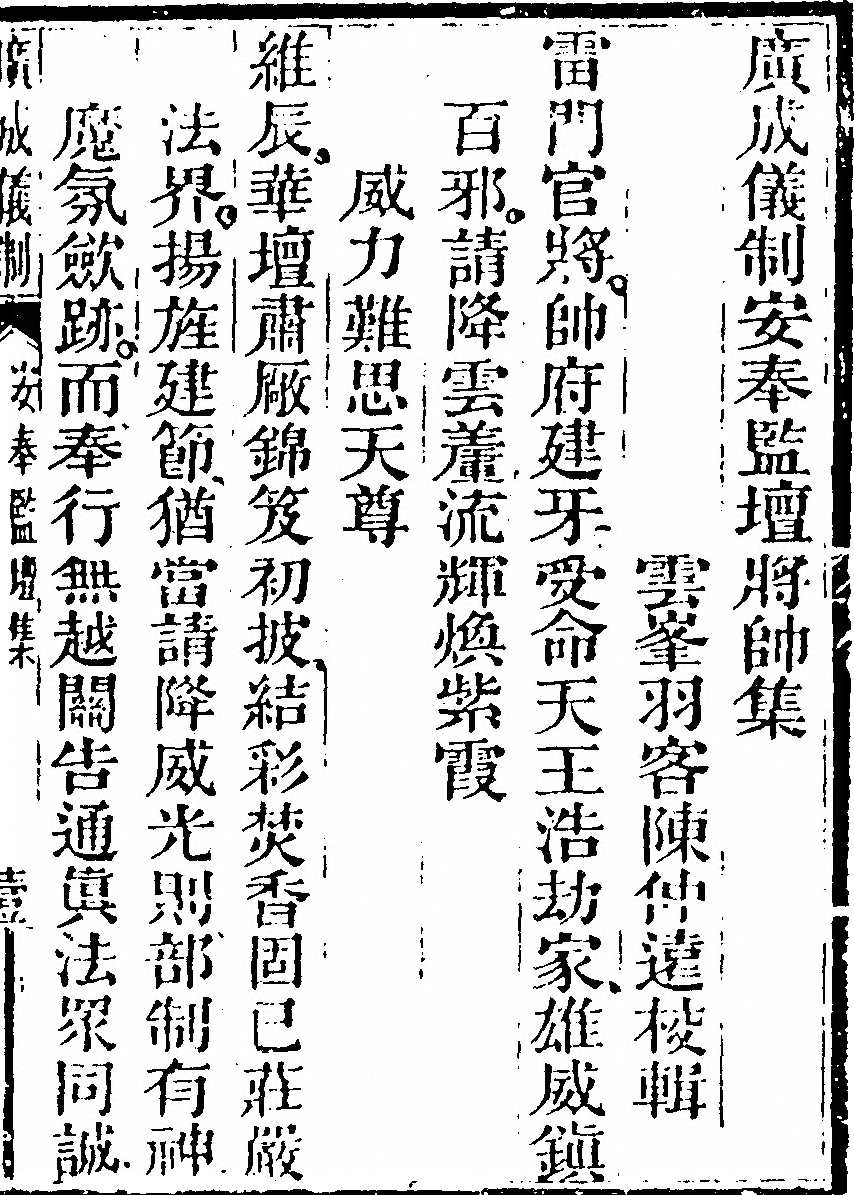 廣成儀制安奉監壇將帥集
雲峯羽客陳仲遠校輯
雷門官將。帥府建牙受命天王浩劫家、雄威鎭
百邪。請降雲軿流輝煥紫霞
威力難思天尊
維辰、華壇肅厰錦笈初披、結彩焚香固已莊嚴
法界。揚旌建節、猶當請降威光則部制有神
魔氛歛跡。而奉行無越關告通眞法眾同誠
廣成儀制 安奉監壇集 壹